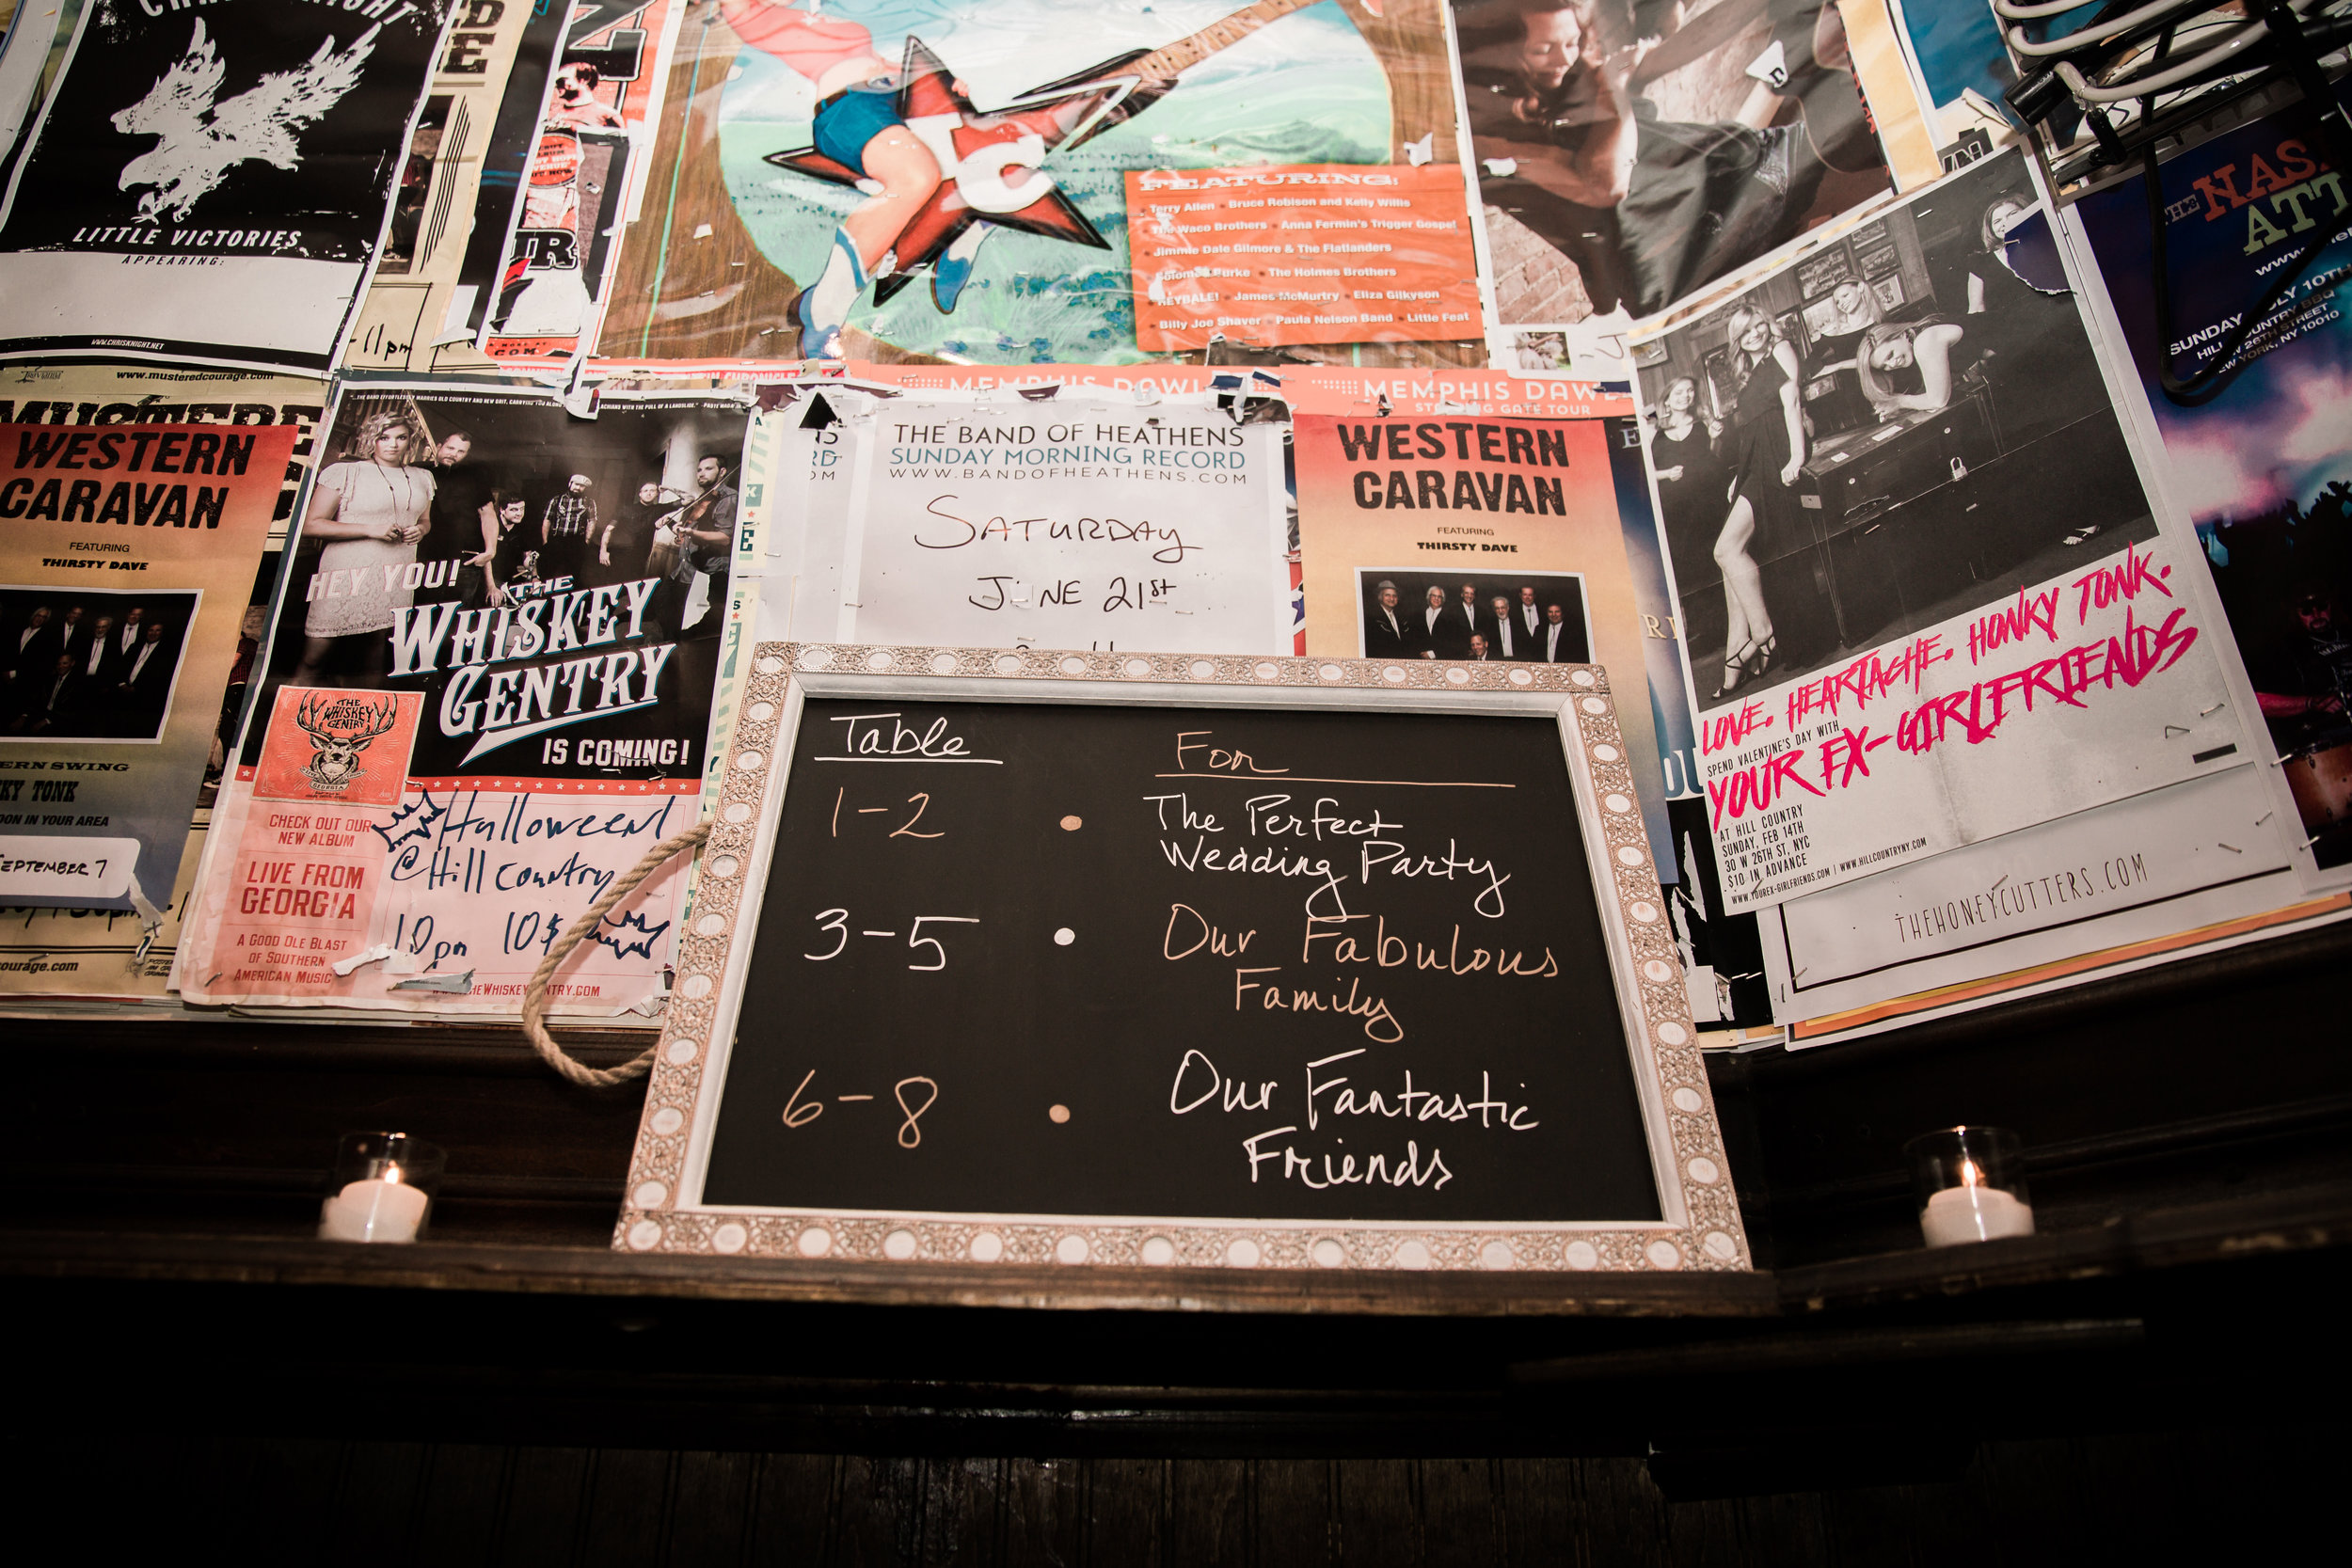 LITTLE VICTORIES
APPEARING:
WWW.CHRISKNIGHT.NET
-11pm
FEATURING:
Terry Allen • Bruce Robison and Kelly Willis
The Waco Brothers • Anna Fermin's Trigger Gospel
Jimmie Dale Gilmore & The Flatlanders
Solomon Burke • The Holmes Brothers
HEYBALE! • James McMurtry • Eliza Gilkyson
Billy Joe Shaver • Paula Nelson Band • Little Feat
SUNDAY
www.musteredcourage.com
WESTERN
CARAVAN
FEATURING
THIRSTY DAVE
SEPTEMBER 7
HEY YOU!
THE
WHISKEY
GENTRY
IS COMING!
THE
WHISKEY
GENTRY
GEORGIA
CHECK OUT OUR
NEW ALBUM
LIVE FROM
GEORGIA
A GOOD OLE BLAST
OF SOUTHERN
AMERICAN MUSIC
Halloween!
@ Hill Country
10pm 10$
MEMPHIS
MEMPHIS
GATE TOUR
THE BAND OF HEATHENS
SUNDAY MORNING RECORD
WWW.BANDOFHEATHENS.COM
SATURDAY
JUNE 21st
WESTERN
CARAVAN
FEATURING
THIRSTY DAVE
LOVE. HEARTACHE. HONKY TONK.
SPEND VALENTINE'S DAY WITH
YOUR EX-GIRLFRIENDS
AT HILL COUNTRY
SUNDAY, FEB 14TH
30 W 26TH ST, NYC
$10 IN ADVANCE
WWW.YOUREX-GIRLFRIENDS.COM | WWW.HILLCOUNTRYNY.COM
THEHONEYCUTTERS.COM
Table For
1-2 • The Perfect
Wedding Party
3-5 • Our Fabulous
Family
6-8 • Our Fantastic
Friends